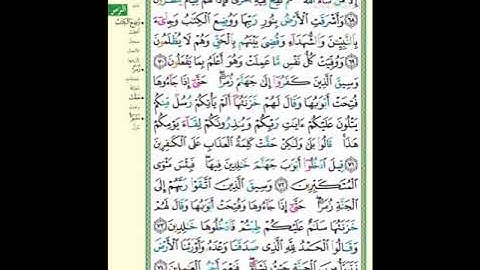 وَأَشْرَقَتِ ٱلْأَرْضُ بِنُورِ رَبِّهَا وَوُضِعَ ٱلْكِتَٰبُ وَجِا۟ىٓءَ
بِٱلنَّبِيِّـۧنَ وَٱلشُّهَدَآءِ وَقُضِىَ بَيْنَهُم بِٱلْحَقِّ وَهُمْ لَا يُظْلَمُونَ
٦٩ وَوُفِّيَتْ كُلُّ نَفْسٍ مَّا عَمِلَتْ وَهُوَ أَعْلَمُ بِمَا يَفْعَلُونَ ٧٠
وَسِيقَ ٱلَّذِينَ كَفَرُوٓا۟ إِلَىٰ جَهَنَّمَ زُمَرًا حَتَّىٰٓ إِذَا جَآءُوهَا
فُتِحَتْ أَبْوَٰبُهَا وَقَالَ لَهُمْ خَزَنَتُهَآ أَلَمْ يَأْتِكُمْ رُسُلٌ مِّنكُمْ
يَتْلُونَ عَلَيْكُمْ ءَايَٰتِ رَبِّكُمْ وَيُنذِرُونَكُمْ لِقَآءَ يَوْمِكُمْ
هَٰذَا قَالُوا۟ بَلَىٰ وَلَٰكِنْ حَقَّتْ كَلِمَةُ ٱلْعَذَابِ عَلَى ٱلْكَٰفِرِينَ
٧١ قِيلَ ٱدْخُلُوٓا۟ أَبْوَٰبَ جَهَنَّمَ خَٰلِدِينَ فِيهَا فَبِئْسَ مَثْوَى
ٱلْمُتَكَبِّرِينَ ٧٢ وَسِيقَ ٱلَّذِينَ ٱتَّقَوْا۟ رَبَّهُمْ إِلَى
ٱلْجَنَّةِ زُمَرًا حَتَّىٰٓ إِذَا جَآءُوهَا وَفُتِحَتْ أَبْوَٰبُهَا وَقَالَ لَهُمْ
خَزَنَتُهَا سَلَٰمٌ عَلَيْكُمْ طِبْتُمْ فَٱدْخُلُوهَا خَٰلِدِينَ
٧٣ وَقَالُوا۟ ٱلْحَمْدُ لِلَّهِ ٱلَّذِى صَدَقَنَا وَعْدَهُۥ وَأَوْرَثَنَا ٱلْأَرْضَ